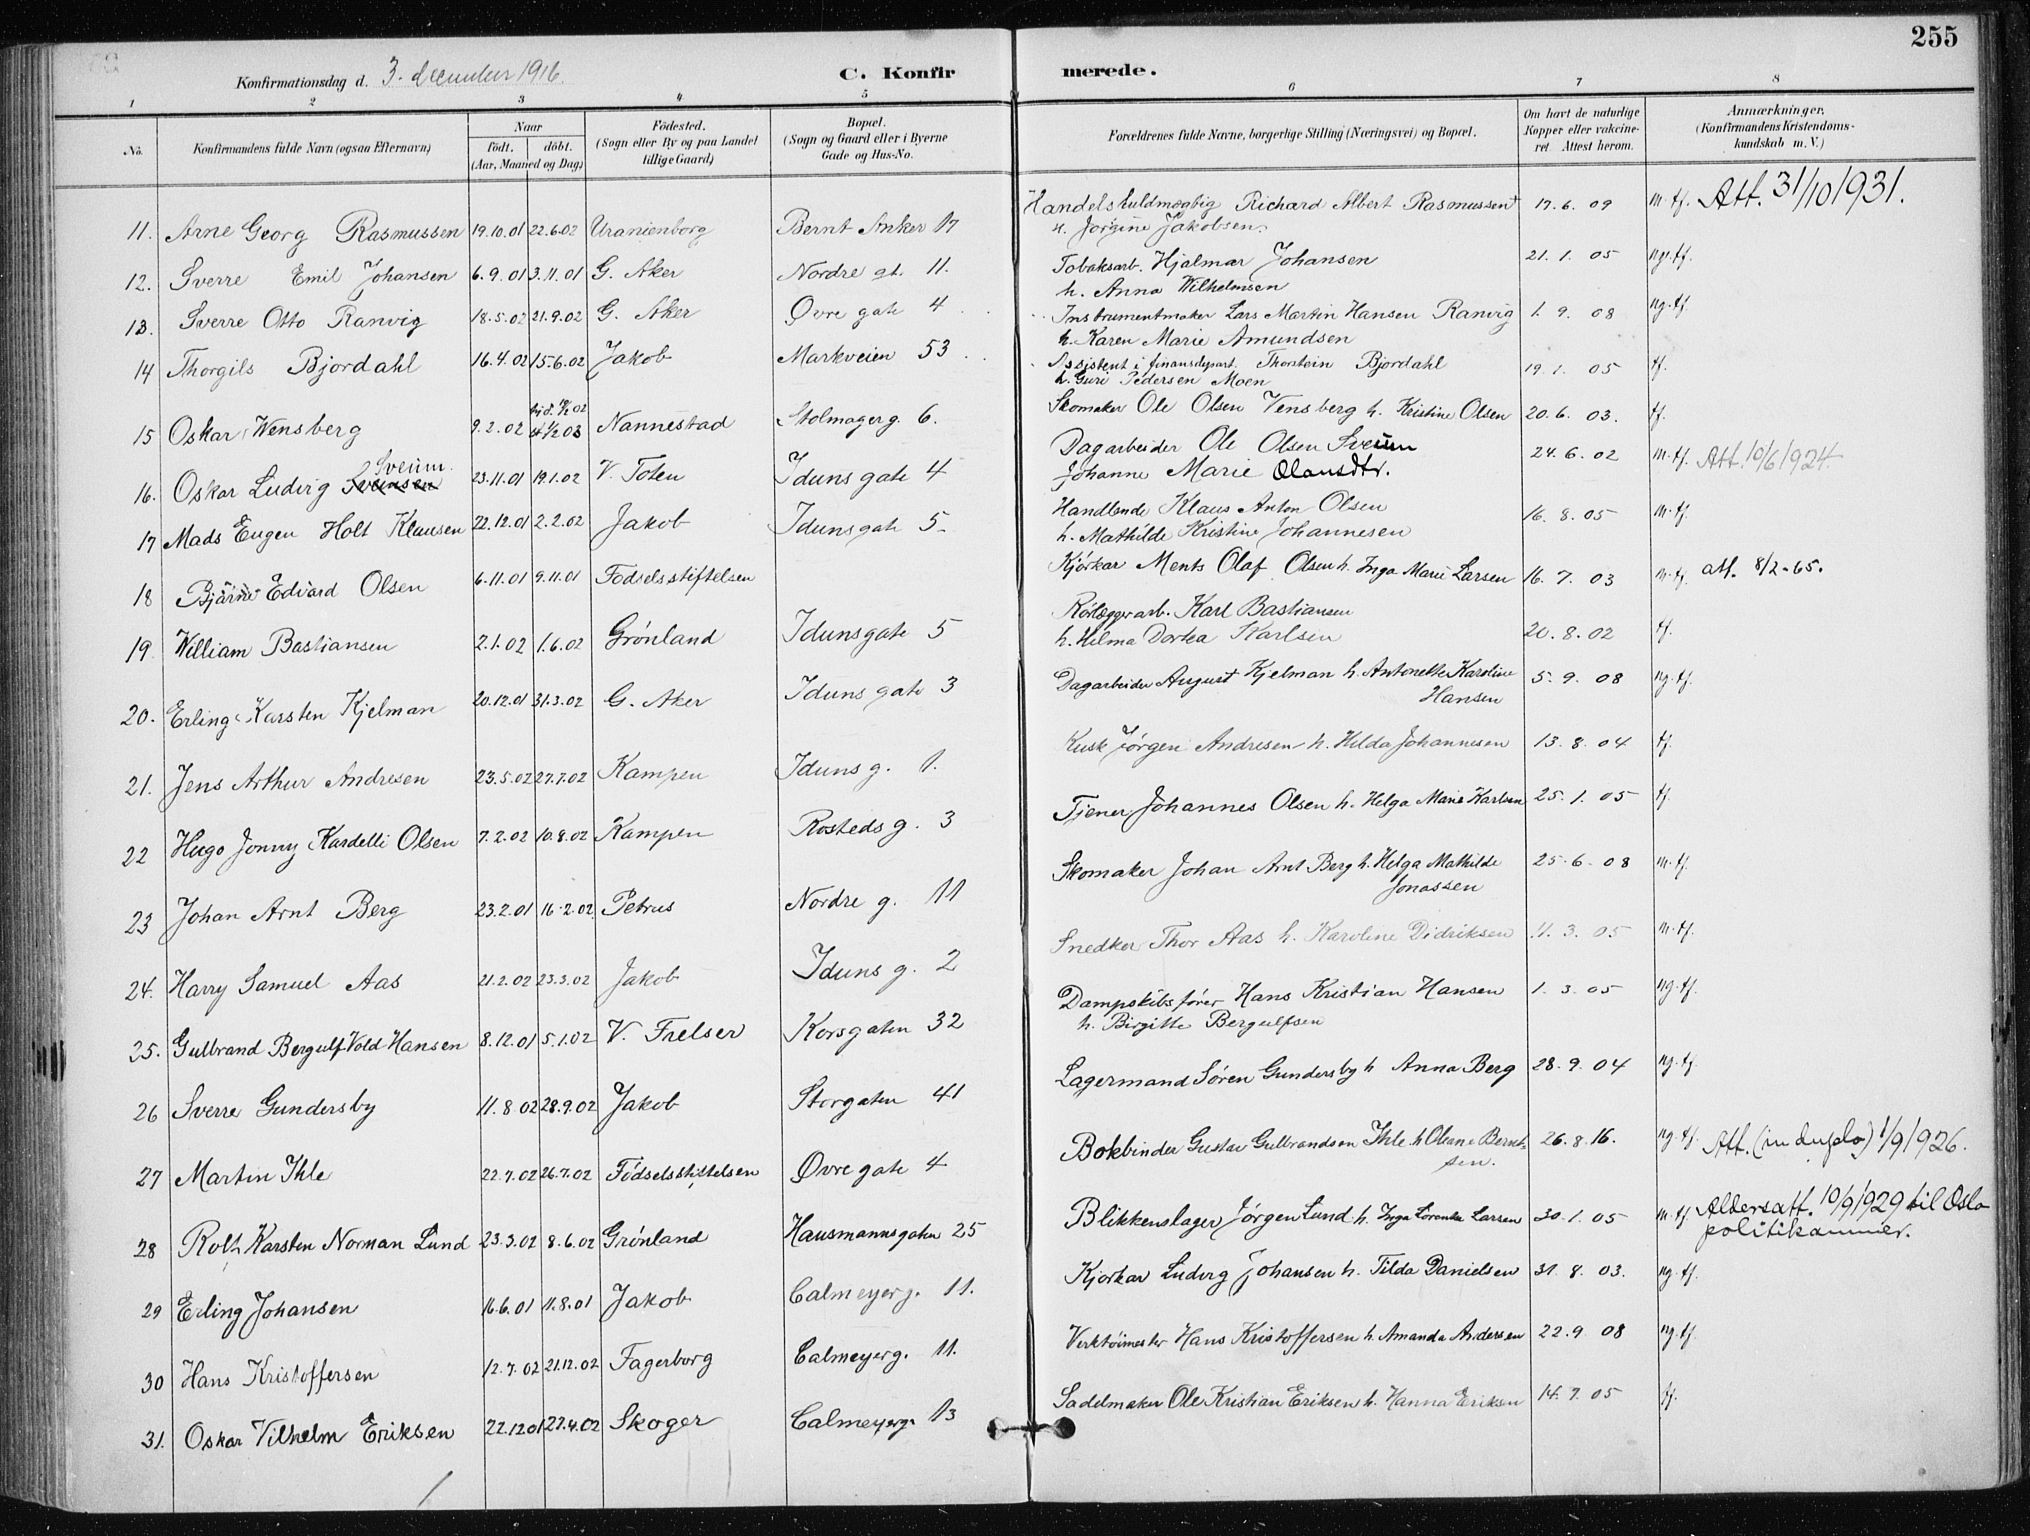 255
Konfirmationsdag d. 3. december 1916.
C. Konfirmerede.
1 2 3 4 5 6 7 8
No. Konfirmandens fulde Navn (ogsaa Efternavn) Naar født. døbt. (Aar, Maaned og Dag) Fødested. (Sogn eller By og paa Landet tillige Gaard) Bopæl. (Sogn og Gaard eller i Byerne Gade og Hus-No. Forældrenes fulde Navne, borgerlige Stilling (Næringsvei) og Bopæl. Om havt de naturlige Kopper eller vakcineret. Attest herom. Anmærkninger. (Konfirmandens Kristendomskundskab m. V.)
11. Arne Georg Rasmussen 19.10.01 22.6.02 Uranienborg Bernt Anker 17 Richard Albert Rasmussen 17.6.09 m.tf. Att. 31/10 1931.
Jørgine Jakobsen.
12. Sverre Emil Johansen 6.9.01 3.11.01 G. Aker Nordre gt. 11. Tobaksarb. Hjalmar Johansen 21.1.05 ng.tf.
h. Anna Wilhelmsen
13. Sverre Otto Ranvig 18.5.02 21.9.02 G. Aker Øvre gate 4 Instrumentmaker Lars Martin Hansen Ranvig 1.9.08 ng.tf.
h. Karen Marie Amundsen
14 Thorgils Bjordahl 16.4.02 15.6.02 Jakob Markveien 53 Assistent i finansdepart. Thorstein Bjordahl 19.1.05 tf.
h. Guri Pedersen Moen
15 Oskar Wensberg 9.2.02 Nannestad Stolmagerg. 6. Skomaker Ole Olsen Vensberg h. Kristine Olsen 20.6.03. tf.
16. Oskar Ludvig Svensen Sveum. 23.11.01 19.1.02 V. Toten Iduns gate 4 Dagarbeider Ole Olsen Sveum 24.6.02 m.tf. Att. 10/6 1924.
Johanne Marie Olausdtr.
17 Mads Eugen Holt Klausen 22.12.01 2.2.02 Jakob Iduns gate 5 Handlende Klaus Anton Olsen 16.8.05 m.tf.
h. Mathilde Kristine Johannesen
18 Bjarne Edvard Olsen 6.11.01 9.11.01 Fødselsstiftelsen Kjørkar Ments Olaf Olsen h. Inga Marie Larsen 16.7.03 m.tf. att. 8/2-65.
19. William Bastiansen 2.1.02 1.6.02 Grønland Iduns gate 5 Rørlæggerarb. Karl Bastiansen 20.8.02 tf.
h. Hilma Dortea Karlsen
20. Erling Karsten Kjelman 20.12.01 31.3.02 G. Aker Iduns gate 3 Dagarbeider August Kjelman h. Antonette Karoline Hansen 5.9.08 ng.tf.
21. Jens Arthur Andresen 23.5.02 27.7.02 Kampen Iduns g. 1. Kusk Jørgen Andresen h. Hilda Johannesen 13.8.04 tf.
22 Hugo Jonny Kardelli Olsen 7.2.02 10.8.02 Kampen Rosteds g. 3 Tjener Johannes Olsen h. Helga Marie Karlsen 25.1.05 tf.
23 Johan Arnt Berg 23.2.01 16.2.02 Petrus Nordre g. 11 Skomaker Johan Arnt Berg h. Helga Mathilde Jonassen 25.6.08 m.tf.
24. Harry Samuel Aas 21.2.02 23.3.02 Jakob Iduns g. 2 Snedker Thor Aas h. Karoline Didriksen 4.3.05 m.tf.
25. Gulbrand Bergulf Vold Hansen 8.12.01 5.1.02 V. Frelser Korsgaten 32 Dampskibsfører Hans Kristian Hansen 1.3.05 ng.tf.
h. Birgitte Bergulfsen
26 Sverre Gundersby 11.8.02 28.9.02 Jakob Storgaten 41 Lagermand Søren Gundersby h Anna Berg 28.9.04 ng.tf.
27 Martin Ihle 22.7.02 26.7.02 Fødselsstiftelsen Øvre gate 4 Bokbinder Gustav Gulbrandsen Ihle h Oleane Berntsen. 26.8.16. ng.tf. Att. (in duplo) 1/9 1926.
28 Rolf Karsten Norman Lund 23.3.02 8.6.02 Grønland Hausmannsgaten 25 Blikkenslager Jørgen Lund h. Inga Lorentse Larsen 30.1.05 m.tf. Aldersatt. 10/9 1929 til Oslo politikammer.
29 Erling Johansen 16.6.01 11.8.01 Jakob Calmeyerg. 11. Kjørkar Ludvig Johansen h. Tilda Danielsen 31.8.03. ng.tf.
30 Hans Kristoffersen 12.7.02 21.12.02 Fagerborg Calmeyerg. 11. Verktøimester Hans Kristoffersen h Amanda Andersen 22.9.08 ng.tf.
31. Oskar Vilhelm Eriksen 22.12.01 27.4.02 Skoger Calmeyerg. 13 Sadelmaker Ole Kristian Eriksen h. Hanna Eriksen 14.7.05 tf.